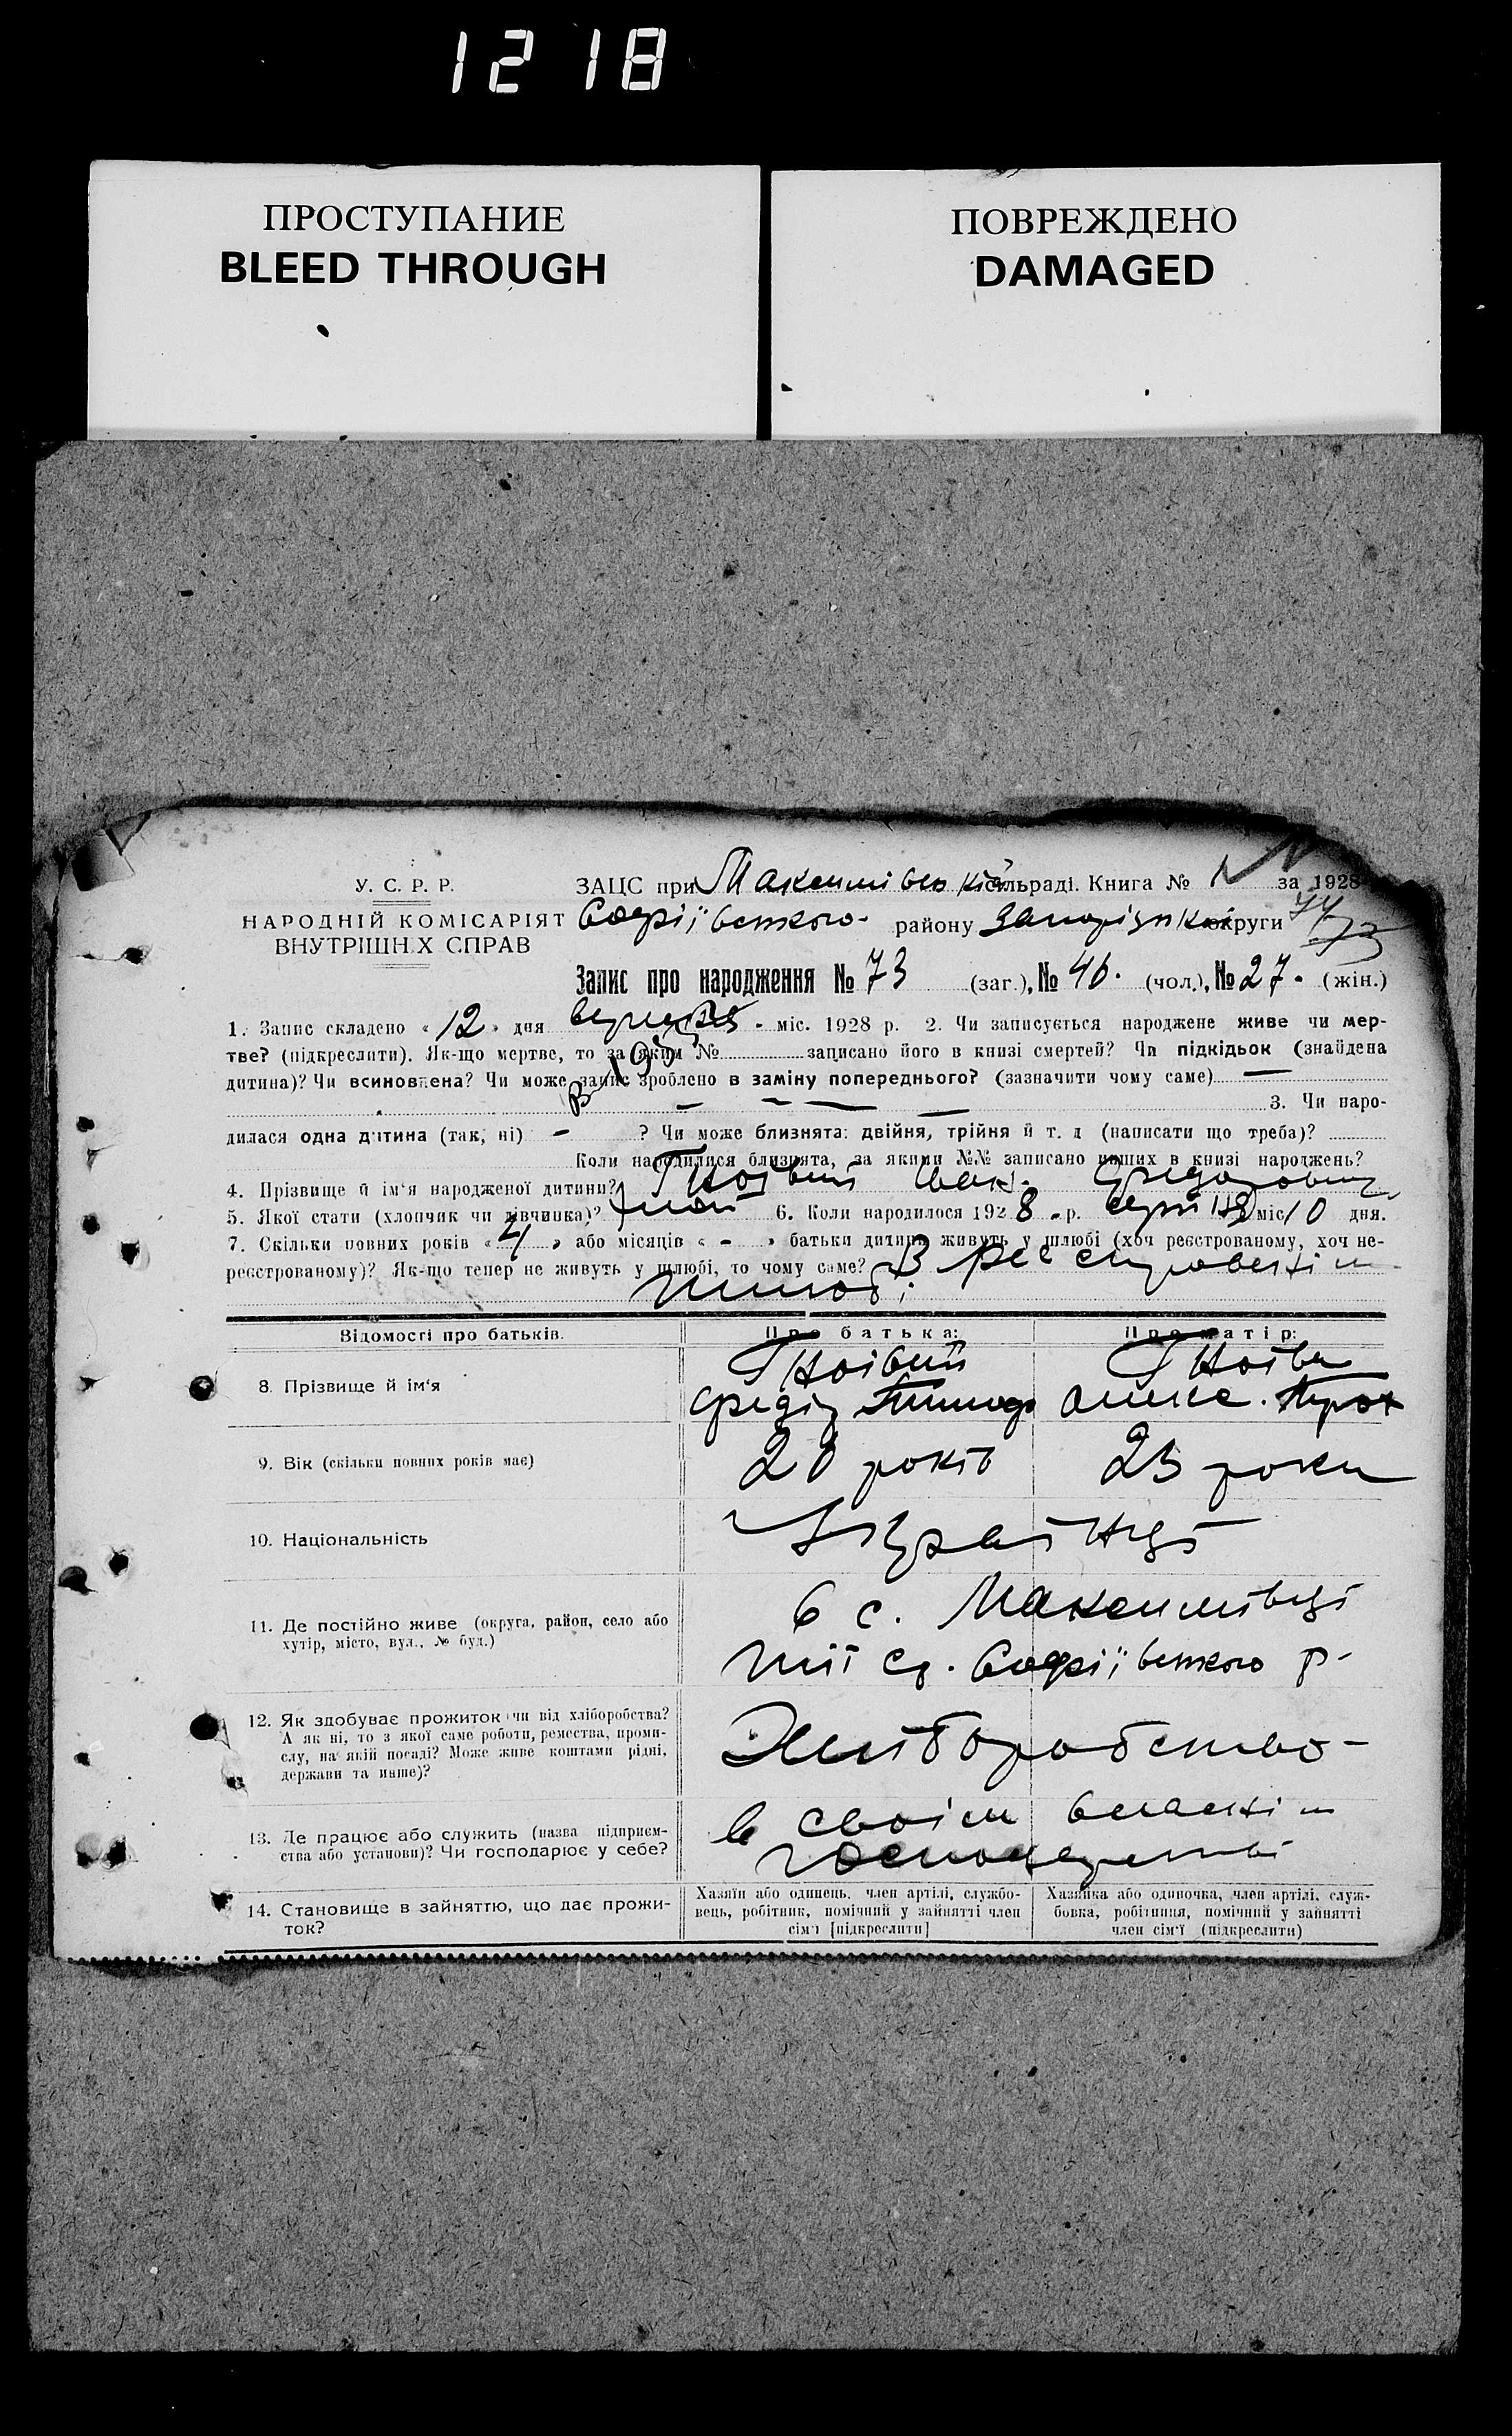 1218
ПРОСТУПАНИЕ
BLEED THROUGH
ПОВРЕЖДЕНО
DAMAGED
У. С. Р. Р.
НАРОДНІЙ КОМІСАРІЯТ
ВНУТРІШН.Х СПРАВ
ЗАЦС при Максимівській сільраді. Книга № 1 за 1928
Софіївського району Запорізьк округи
Запис про народження № 73 (заг.), № 46. (чол.), № 27. (жін.)
1. Запис складено « 12 » дня вересня міс. 1928 р. 2. Чи записується народжене живе чи мер-
тве? (підкреслити). Як-що мертве, то за яким № записано його в книзі смертей? Чи підкідьок (знайдена
дитина)? Чи всиновлена? Чи може запис зроблено в заміну попереднього? (зазначити чому саме) —
3. Чи наро-
дилася одна дитина (так, ні) - ? Чи може близнята: двійня, трійня й т. д (написати що треба)?
Коли народилися близнята, за якими №№ записано инших в книзі народжень?
4. Прізвище й ім'я народженої дитини? Гноівий Іван Федорович
5. Якої статі (хлопчик чи дівчинка)? 6. Коли народилося 1928 р. серпня міс 10 дня.
7. Скільки повних років « 4 » або місяців « - » батьки дитини живуть у шлюбі (хоч реєстрованому, хоч не-
реєстрованому)? Як-що тепер не живуть у шлюбі, то чому саме? В реєстрованім
шлюбі
Відомості про батьків.
Про батька:
Про матір:
8. Прізвище й ім'я
Гноівий
Федір Тимоф
Гноіва
Олекс. Прок
9. Вік (скільки повних років має)
20 років
23 роки
10. Національність
Українці
11. Де постійно живе (округа, район, село або
хутір, місто, вул., № буд.)
в с. Максимівці
тії ср. Софіївського р-
12. Як здобуває прожиток чи від хліборобства?
А як ні, то з якої саме роботи, ремества, проми-
слу, на якій посаді? Може живе коштами рідні,
держави та инше)?
Хліборобство-
13. Де працює або служить (назва підприєм-
ства або установи)? Чи господарює у себе?
в своїм власнім
господарстві
14. Становище в зайняттю, що дає прожи-
ток?
Хазяїн або одинець, член артілі, службо-
вець, робітник, помічний у зайнятті член
сім'ї [підкреслити]
Хазяйка або одиночка, член артілі, служ-
бовка, робітниця, помічний у зайнятті
член сім'ї (підкреслити)